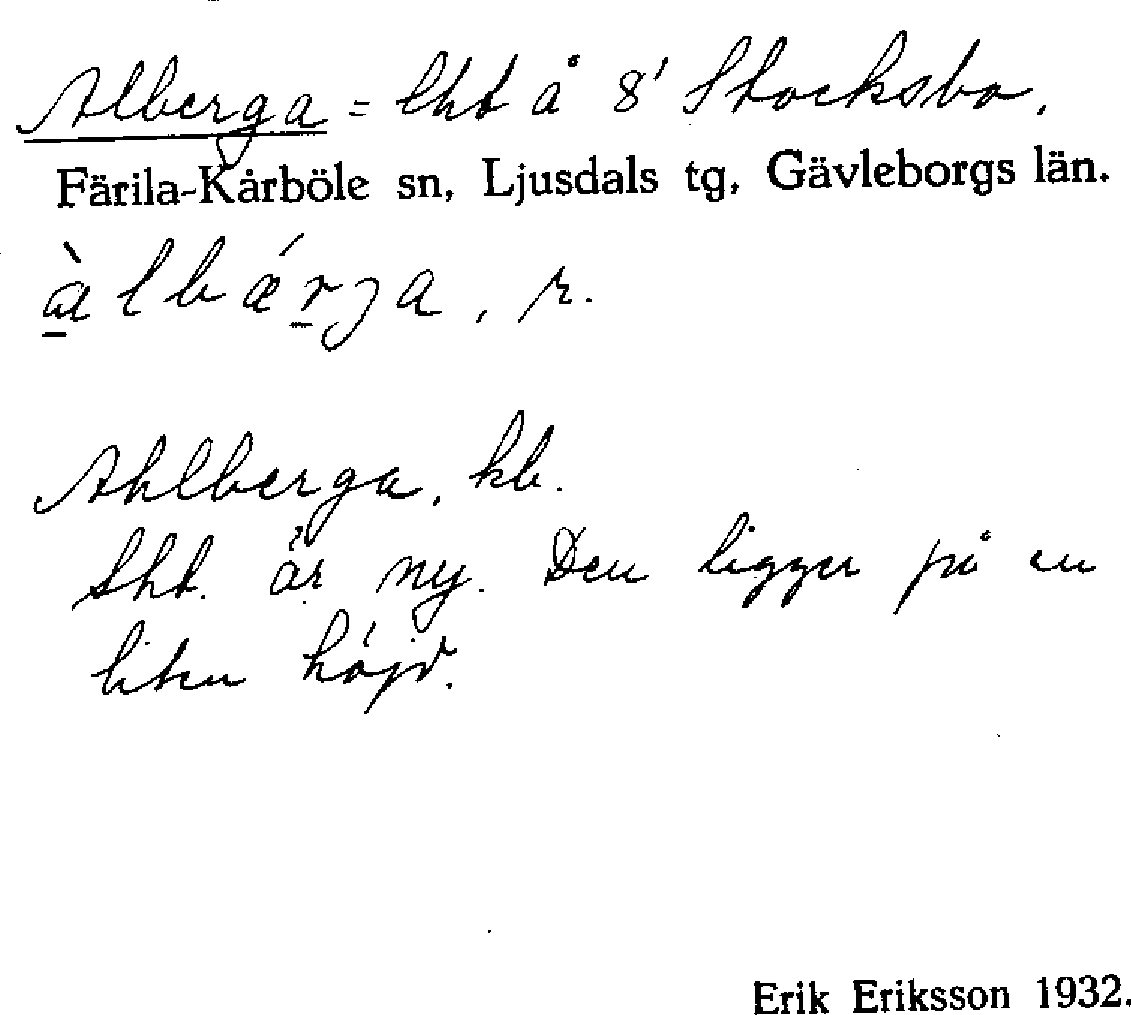 Alberga = lht å 8' Stocksbo.
Färila-Kårböle sn, Ljusdals tg, Gävleborgs län.
àlbǽrga, r.
Ahlberga, kb.
Lht. är ny. Den ligger på en
liten höjd.
Erik Eriksson 1932.